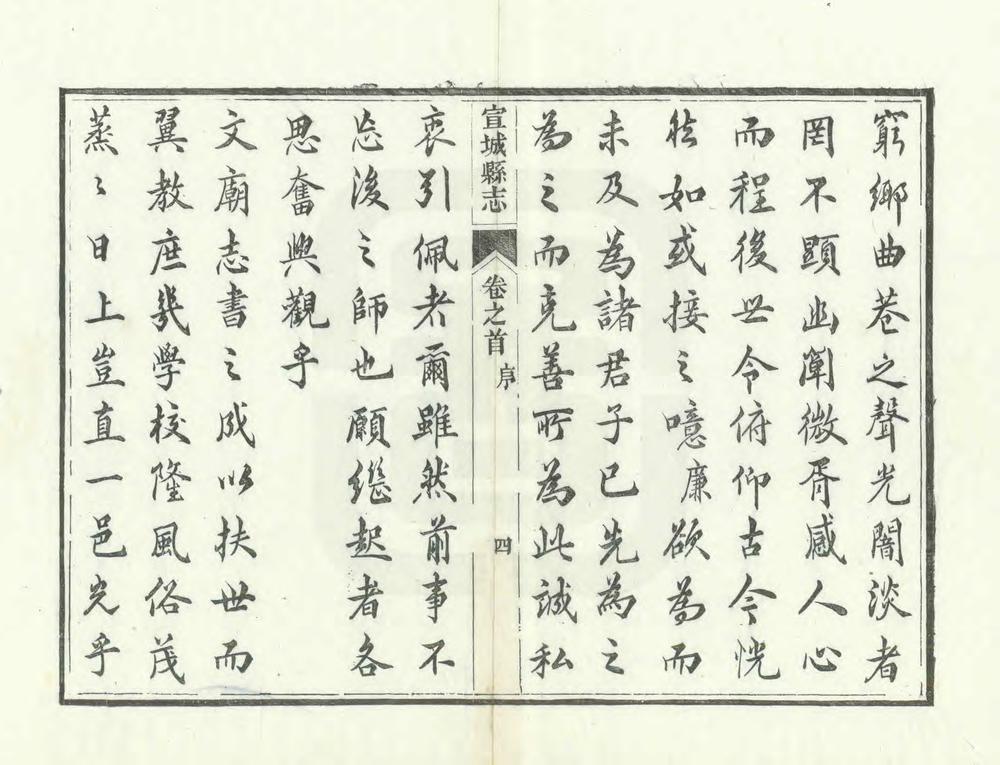 窮鄉曲巷之聲光闇淡者
罔不顯幽闡微胥感人心
而程後世令俯仰古今恍
然如或接之噫廉欲為而
未及為諸君子已先為之
為之而克善所為此誠私
宣城縣志 卷之首 序 四
衷引佩者爾雖然前事不
忘後之師也願繼起者各
思奮興觀乎
文廟志書之成以扶世而
翼教庶幾學校隆風俗茂
蒸〻日上豈直一邑光乎